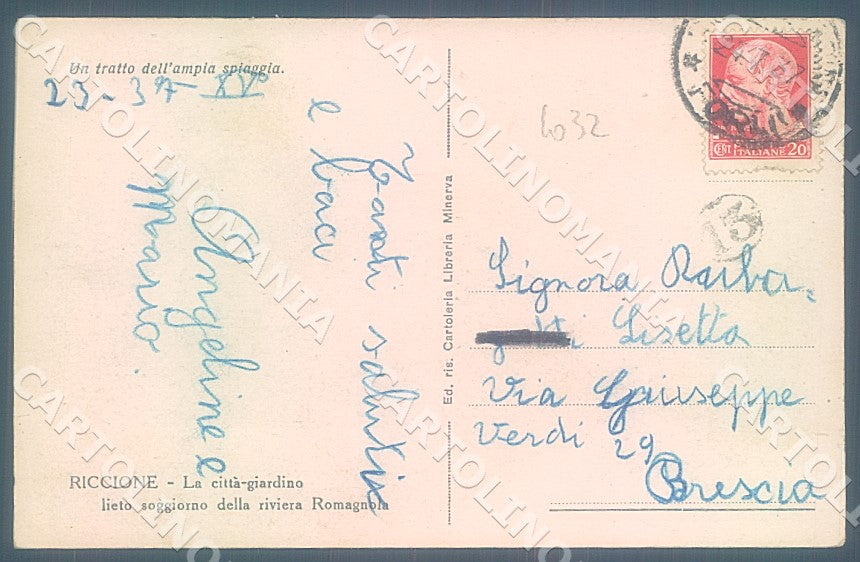 Un tratto dell'ampia spiaggia.
25-37-XV°
Tanti saluti
e baci
Angelina e
Mario.
RICCIONE - La città-giardino
lieto soggiorno della riviera Romagnola
Ed. ris. Cartoleria Libreria Minerva
6032
FORLI
CENT
ITALIANE 20
15
Signora Barba-
Lisetta
Via Giuseppe
Verdi 29
Brescia
CARTOLINOMANIA